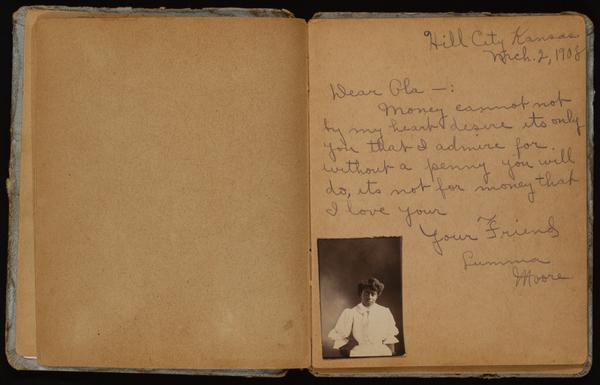 Hill City Kansas
Mrch. 2, 1908
Dear Ola —:
Money cannot not
by my heart desire its only
you that I admire for.
without a penny you will
do, its not for money that
I love your
Your Friend
Lumma
Moore